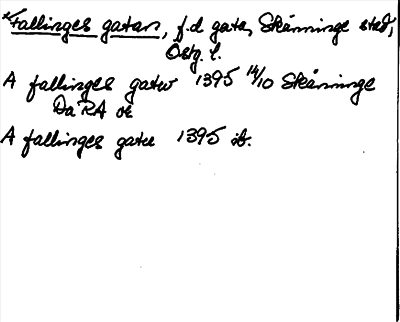 *Fallinges gatan, f.d gata, Skänninge stad,
Östg. l.
A fallinges gatw 1395 14/10 Skänninge
Da RA or
A fallinges gatu 1395 ib.